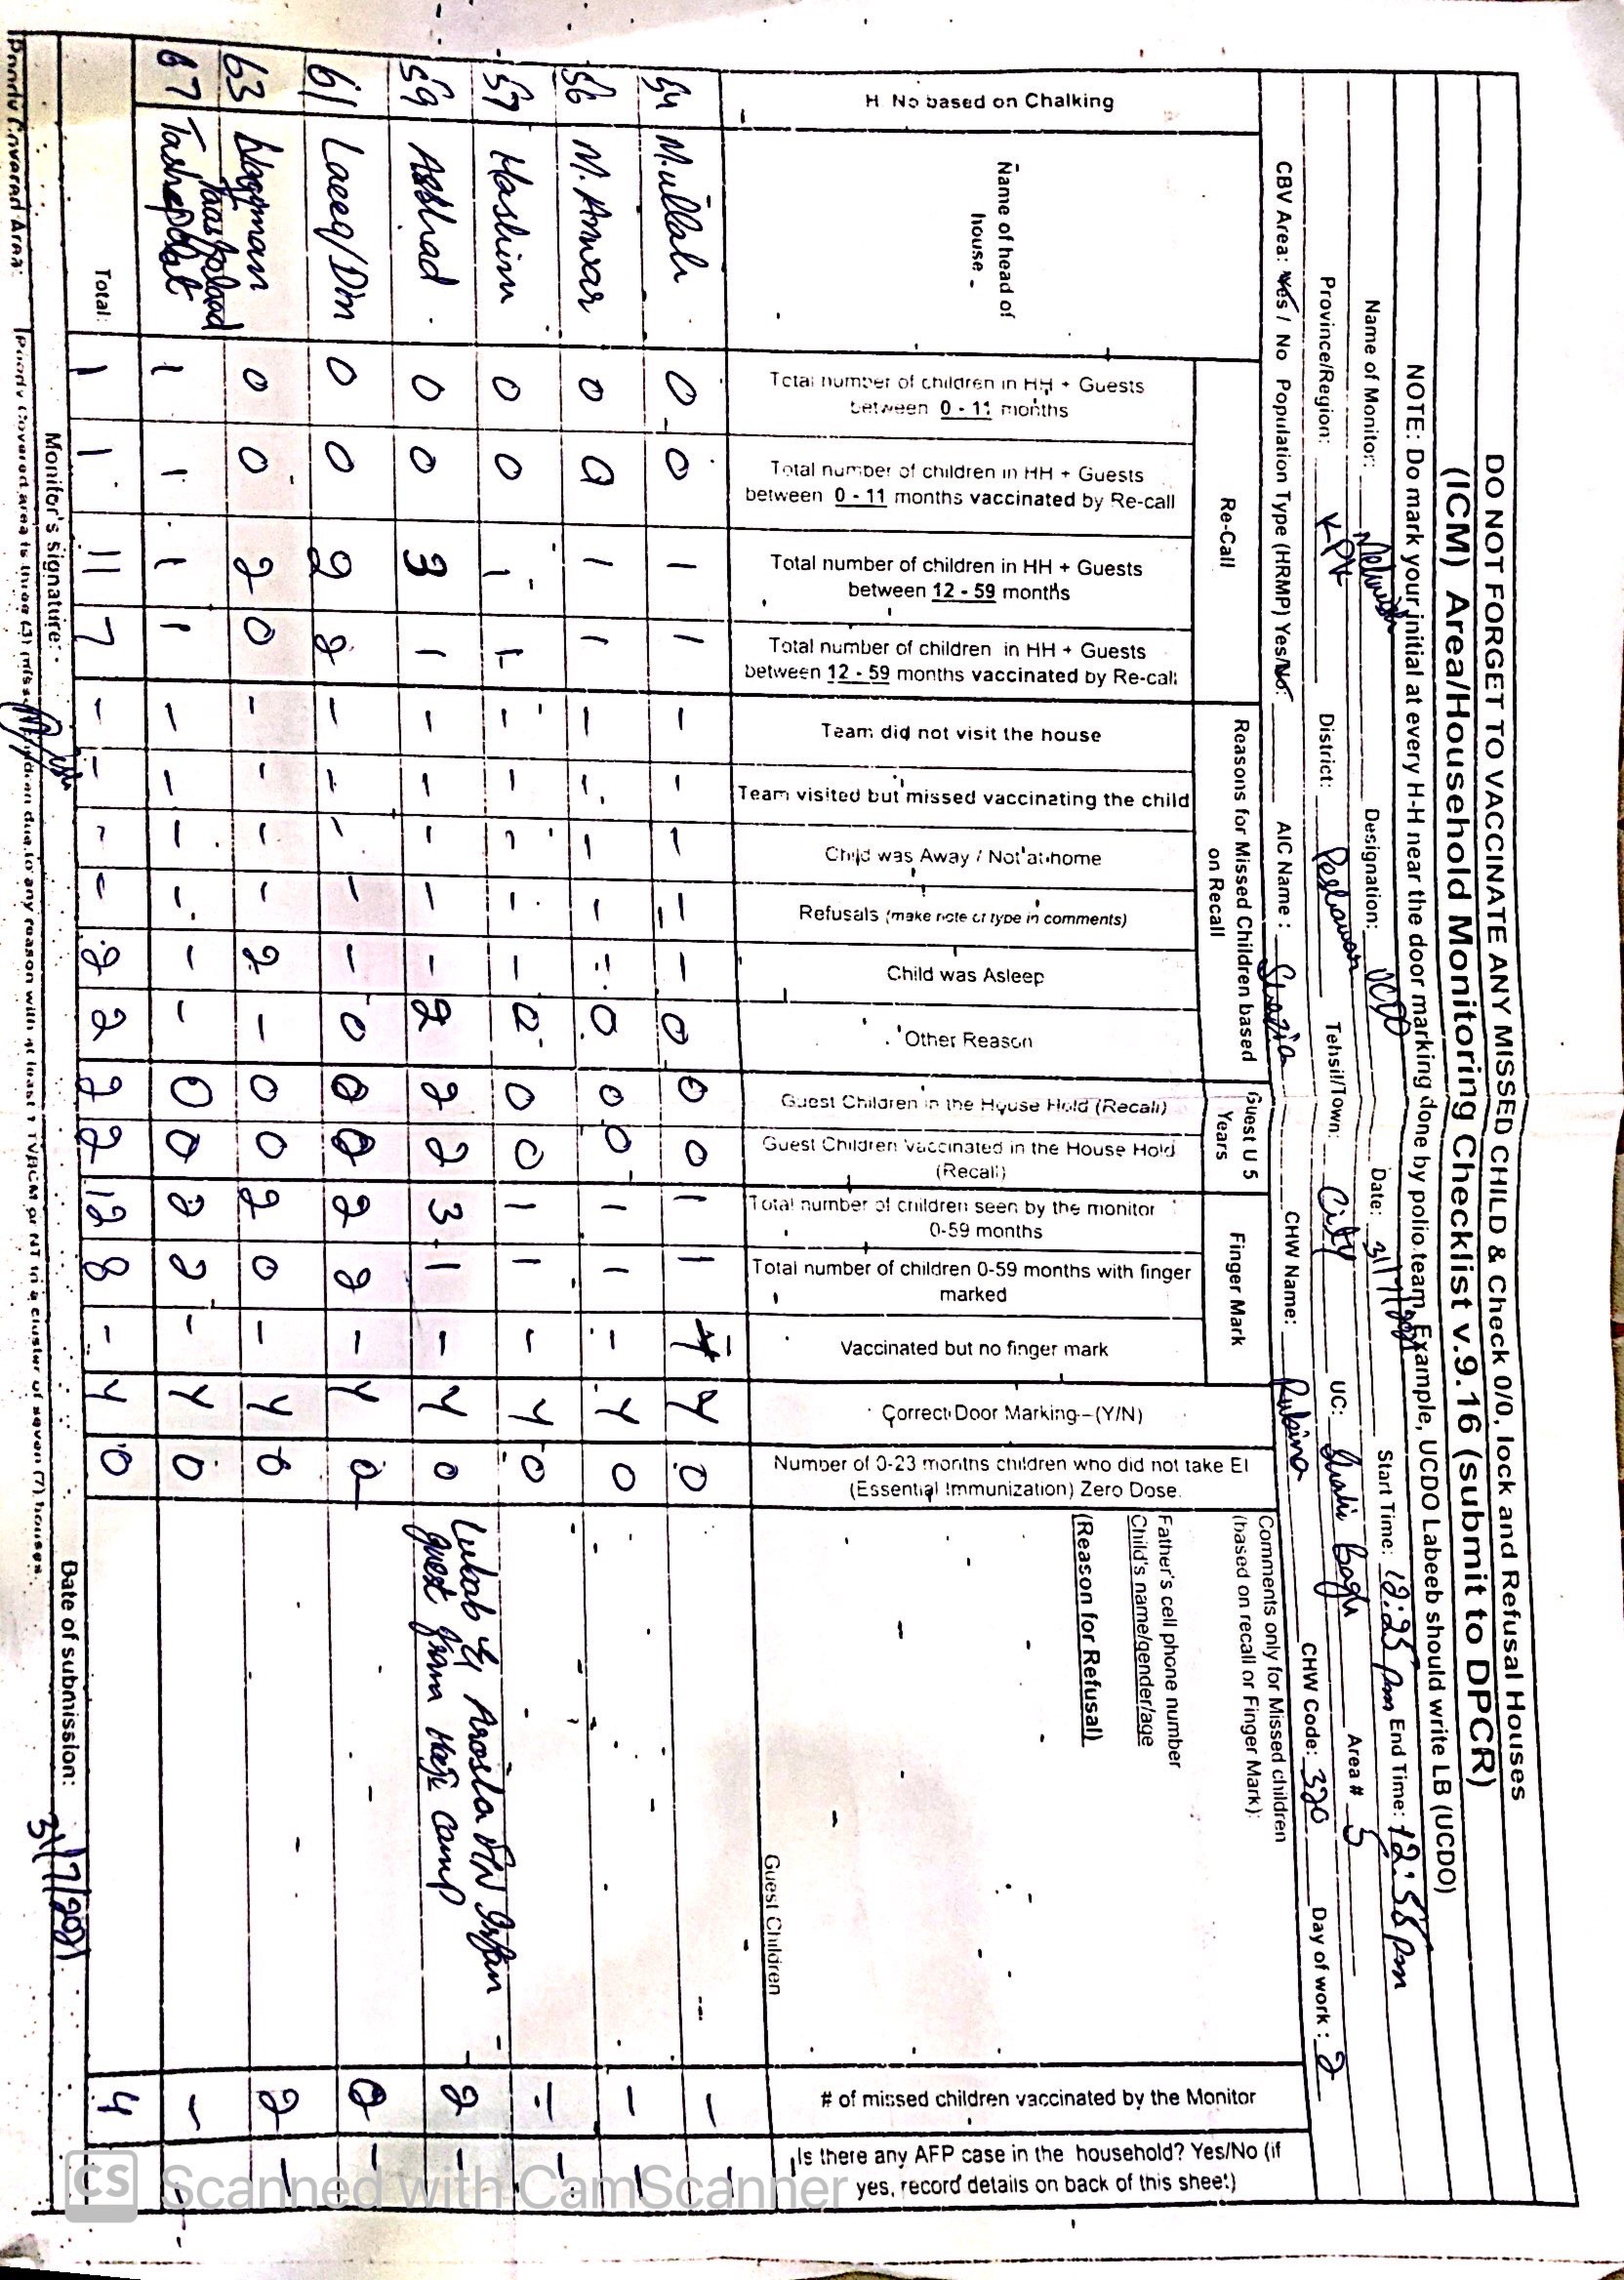 DO NOT FORGET TO VACCINATE ANY MISSED CHILD & Check 0/0, lock and Refusal Houses
(ICM) Area/Household Monitoring Checklist v.9.16 (submit to DPCR)
NOTE: Do mark your initial at every H-H near the door marking done by polio team. Example, UCDO Labeeb should write LB (UCDO)
Name of Monitor: Designation: UCDO Date: 31/7/2021 Start Time: 12:25 pm End Time: 12:58 pm
Province/Region: KPK District: Peshawar Tehsil/Town: City UC: Shahi Bagh Area # 5
CBV Area: Yes / No Population Type (HRMP) Yes/No: AIC Name : Shazia CHW Name: Rubina CHW Code: 320 Day of work : 2
H No based on Chalking
Name of head of house
Re-Call
Total number of children in HH + Guests between 0 - 11 months
Total number of children in HH + Guests between 0 - 11 months vaccinated by Re-call
Total number of children in HH + Guests between 12 - 59 months
Total number of children in HH + Guests between 12 - 59 months vaccinated by Re-call
Reasons for Missed Children based on Recall
Team did not visit the house
Team visited but missed vaccinating the child
Child was Away / Not at home
Refusals (make note of type in comments)
Child was Asleep
Other Reason
Guest U 5 Years
Guest Children in the House Hold (Recall)
Guest Children Vaccinated in the House Hold (Recall)
Finger Mark
Total number of children seen by the monitor 0-59 months
Total number of children 0-59 months with finger marked
Vaccinated but no finger mark
Correct Door Marking--(Y/N)
Number of 0-23 months children who did not take EI (Essential Immunization) Zero Dose.
Comments only for Missed children
(based on recall or Finger Mark):
Father's cell phone number
Child's name/gender/age
(Reason for Refusal)
Guest Children
# of missed children vaccinated by the Monitor
Is there any AFP case in the household? Yes/No (if yes, record details on back of this sheet)
54 M.ullah 0 0 1 1 - - - - - 0 0 0 1 1 - Y 0 - -
56 M. Anwar 0 0 1 1 - - - - - 0 0 0 1 1 - Y 0 - -
57 Hashim 0 0 1 1 - - - - - 0 0 0 1 1 - Y 0 - -
59 Arshad 0 0 3 1 - - - - - 2 2 2 3 1 - Y 0 Irfan guest from camp 2 -
61 Laeeq/Din 0 0 2 2 - - - - - 0 0 0 2 2 - Y 0 0 -
63 0 0 2 0 - - - - 2 - 0 0 2 0 - Y 0 2 -
67 1 1 1 1 - - - - - - 0 0 2 2 - Y 0 - -
Total: 1 1 11 7 - - - - 2 2 2 2 12 8 - Y 0 4 -
Monitor's Signature: Date of submission: 31/7/2021
Poorly Covered Area:
CS Scanned with CamScanner